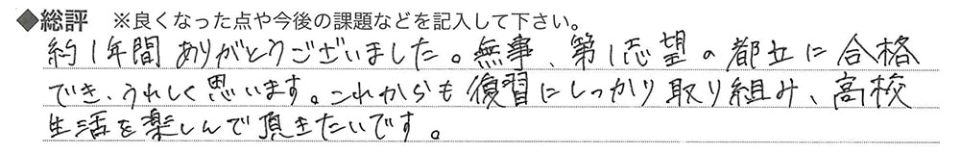 ◆総評 ※良くなった点や今後の課題などを記入して下さい。
約1年間ありがとうございました。無事、第1志望の都立に合格
でき、うれしく思います。これからも復習にしっかり取り組み、高校
生活を楽しんで頂きたいです。